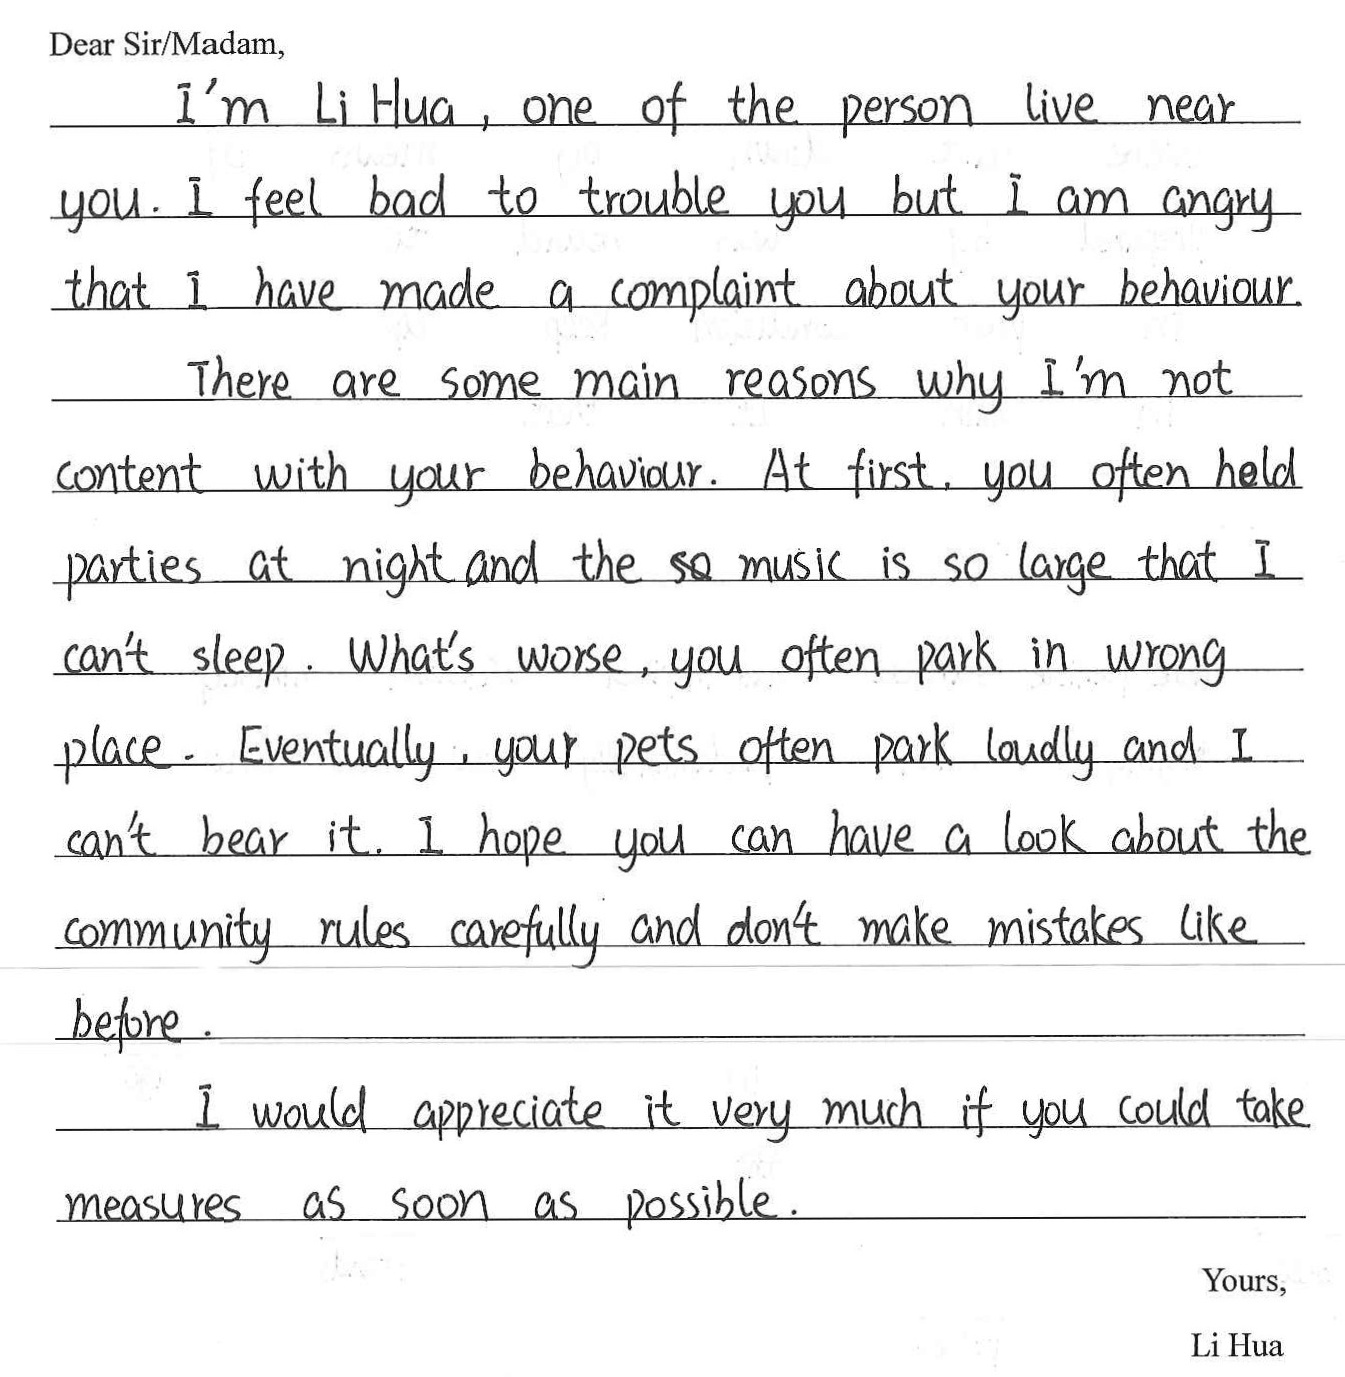 Dear Sir/Madam,
I'm Li Hua, one of the person live near
you. I feel bad to trouble you but I am angry
that I have made a complaint about your behaviour.
There are some main reasons why I'm not
content with your behaviour. At first, you often held
parties at night and the so music is so large that I
can't sleep. What's worse, you often park in wrong
place. Eventually, your pets often park loudly and I
can't bear it. I hope you can have a look about the
community rules carefully and don't make mistakes like
before.
I would appreciate it very much if you could take
measures as soon as possible.
Yours,
Li Hua